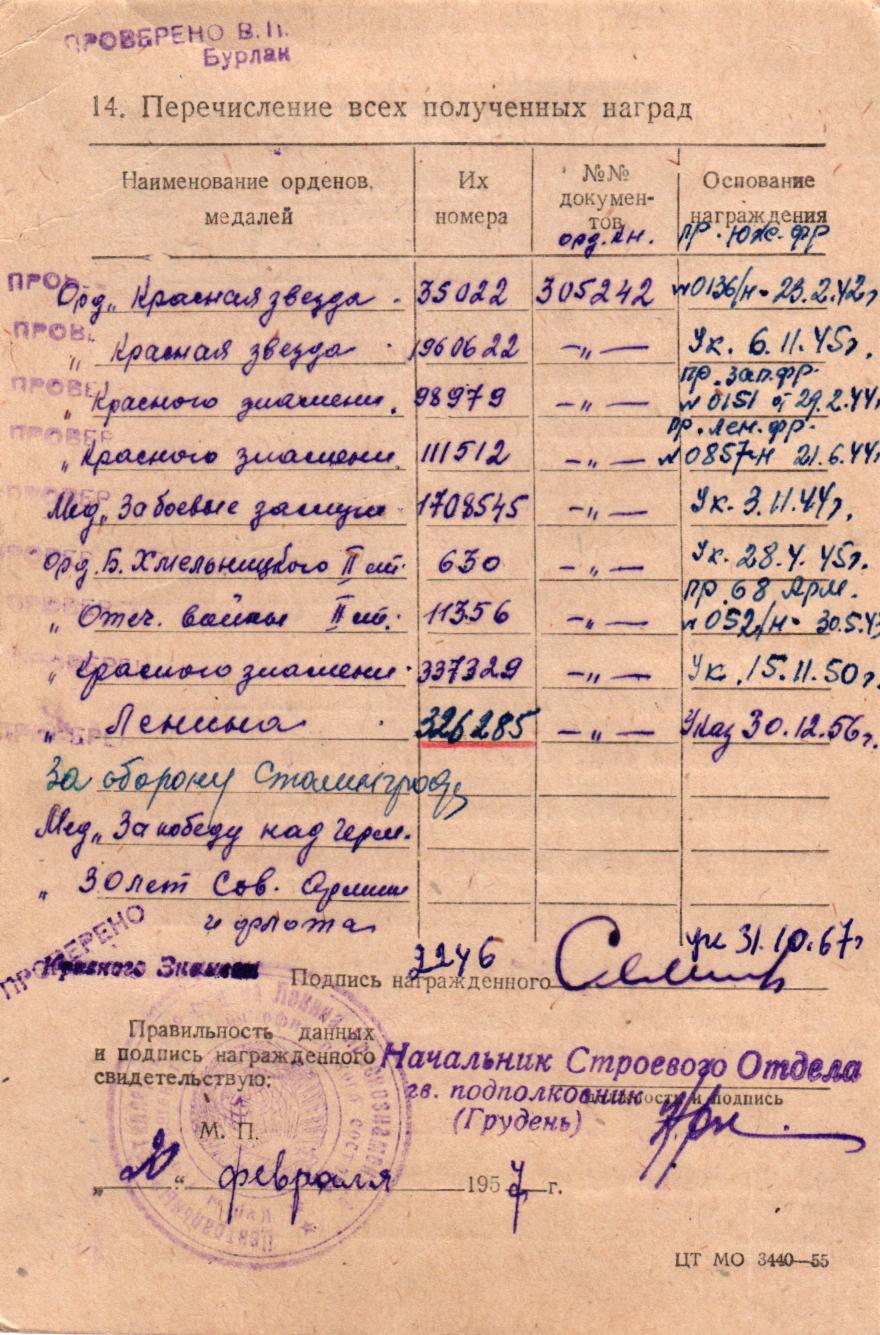 ПРОВЕРЕНО В.П.
Бурлак
14. Перечисление всех полученных наград
Наименование орденов, медалей
Их номера
№№ документов
Основание награждения
орд. кн. пр. Юж. фр
ПРОВ. Орд „ Красная звезда 35022 305242 №0136/н - 23.2.42г
ПРОВ. „ Красная звезда 1960622 —„— Ук. 6.11.45г.
пр. зап. фр.
ПРОВЕ „ Красного знамени 98979 —„— №0151 от 29.2.44г
пр. лен. фр.
ПРОВЕР „ Красного знамени 111512 —„— №0857-н 21.6.44г
ПРОВЕР Мед „ За боевые заслуги 1708545 —„— Ук. 3.11.44г.
ПРОВЕР Орд. Б. Хмельницкого II ст. 630 —„— Ук. 28.4.45г.
пр. 68 Арм.
ПРОВЕР „ Отеч. войны II ст. 11356 —„— №052/н - 30.5.43
„ Красного знамени 337329 —„— Ук. 15.11.50г.
ПРОВЕРЕ „ Ленина 326285 —„— Указ 30.12.56г.
За оборону Сталинграда
Мед „ За победу над Герм.
„ 30 лет Сов. Армии
и флота
ПРОВЕРЕНО
Красного Знамени 2246 ук 31.10.67г
Подпись награжденного
Правильность данных
и подпись награжденного
свидетельствую:
Начальник Строевого Отдела
гв. подполковник
должности и подпись
(Грудень)
М. П.
„20“ февраля 1957 г.
ЦТ МО 3440—55